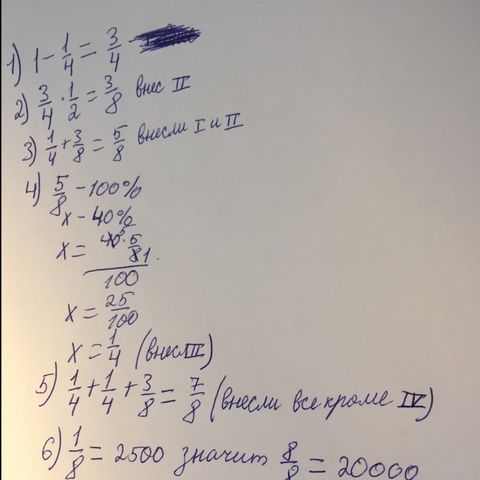 1) 1 - 1/4 = 3/4
2) 3/4 · 1/2 = 3/8 внес II
3) 1/4 + 3/8 = 5/8 внесли I и II
4) 5/8 - 100%
x - 40%
x = 40 · 5/8 / 100
x = 25/100
x = 1/4 (внес III)
5) 1/4 + 1/4 + 3/8 = 7/8 (внесли все кроме IV)
6) 1/8 = 2500 значит 8/8 = 20000